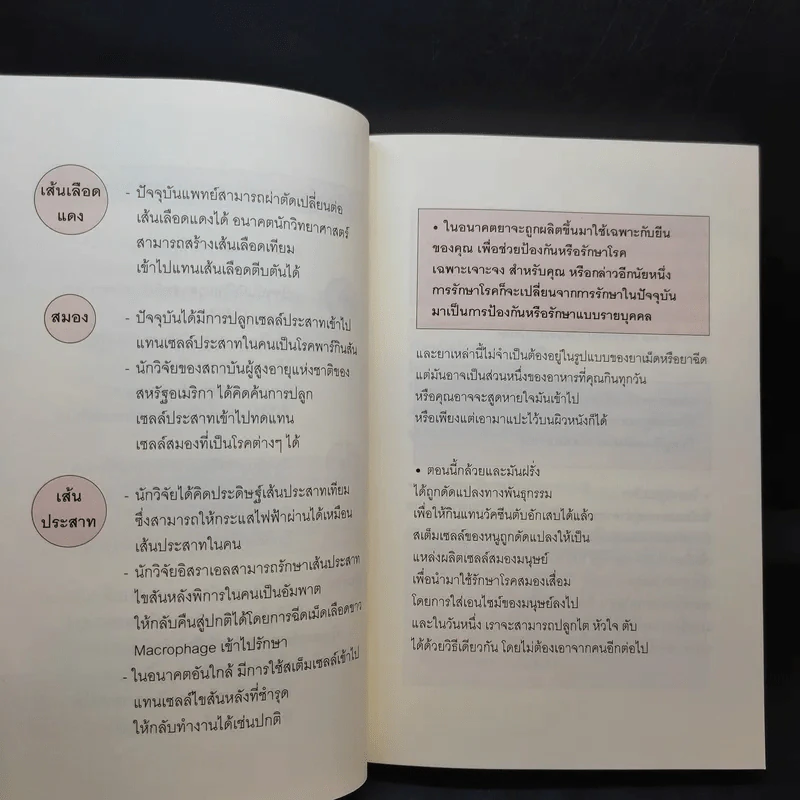 เส้นเลือด
แดง
- ปัจจุบันแพทย์สามารถผ่าตัดเปลี่ยนต่อ
เส้นเลือดแดงได้ อนาคตนักวิทยาศาสตร์
สามารถสร้างเส้นเลือดเทียม
เข้าไปแทนเส้นเลือดตีบตันได้
สมอง
- ปัจจุบันได้มีการปลูกเซลล์ประสาทเข้าไป
แทนเซลล์ประสาทในคนเป็นโรคพาร์กินสัน
- นักวิจัยของสถาบันผู้สูงอายุแห่งชาติของ
สหรัฐอเมริกา ได้คิดค้นการปลูก
เซลล์ประสาทเข้าไปทดแทน
เซลล์สมองที่เป็นโรคต่างๆ ได้
เส้น
ประสาท
- นักวิจัยได้คิดประดิษฐ์เส้นประสาทเทียม
ซึ่งสามารถให้กระแสไฟฟ้าผ่านได้เหมือน
เส้นประสาทในคน
- นักวิจัยอิสราเอลสามารถรักษาเส้นประสาท
ไขสันหลังพิการในคนเป็นอัมพาต
ให้กลับคืนสู่ปกติได้โดยการฉีดเม็ดเลือดขาว
Macrophage เข้าไปรักษา
- ในอนาคตอันใกล้ มีการใช้สเต็มเซลล์เข้าไป
แทนเซลล์ไขสันหลังที่ชำรุด
ให้กลับทำงานได้เช่นปกติ
• ในอนาคตยาจะถูกผลิตขึ้นมาใช้เฉพาะกับยีน
ของคุณ เพื่อช่วยป้องกันหรือรักษาโรค
เฉพาะเจาะจง สำหรับคุณ หรือกล่าวอีกนัยหนึ่ง
การรักษาโรคก็จะเปลี่ยนจากการรักษาในปัจจุบัน
มาเป็นการป้องกันหรือรักษาแบบรายบุคคล
และยาเหล่านี้ไม่จำเป็นต้องอยู่ในรูปแบบของยาเม็ดหรือยาฉีด
แต่มันอาจเป็นส่วนหนึ่งของอาหารที่คุณกินทุกวัน
หรือคุณอาจจะสูดหายใจมันเข้าไป
หรือเพียงแต่เอามาแปะไว้บนผิวหนังก็ได้
• ตอนนี้กล้วยและมันฝรั่ง
ได้ถูกดัดแปลงทางพันธุกรรม
เพื่อให้กินแทนวัคซีนตับอักเสบได้แล้ว
สเต็มเซลล์ของหนูถูกดัดแปลงให้เป็น
แหล่งผลิตเซลล์สมองมนุษย์
เพื่อนำมาใช้รักษาโรคสมองเสื่อม
โดยการใส่เอนไซม์ของมนุษย์ลงไป
และในวันหนึ่ง เราจะสามารถปลูกไต หัวใจ ตับ
ได้ด้วยวิธีเดียวกัน โดยไม่ต้องเอาจากคนอีกต่อไป